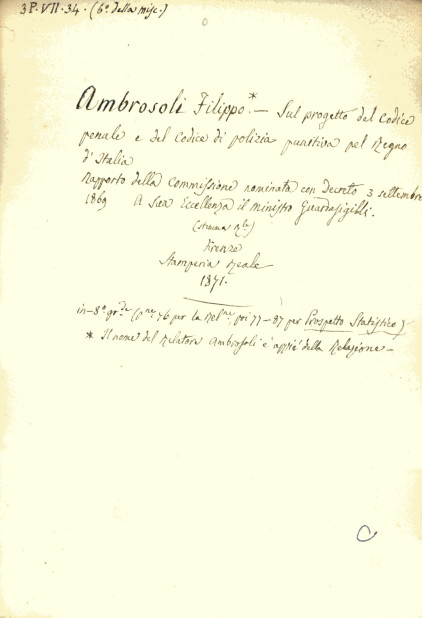 3P.VII.34. (6º della misc.)
Ambrosoli Filippo.* — Sul progetto del Codice
penale e del Codice di polizia punitiva pel Regno
d'Italia
Rapporto della Commissione nominata con decreto 3 settembre
1869 A Sua Eccellenza il ministro Guardasigilli.
(stemma Rle)
Firenze
Stamperia Reale
1871.
in-8º gr.de (pne 76 per la Relne, poi 77-87 per Prospetto Statistico)
* Il nome del Relatore Ambrosoli è appiè della Relazione —
C